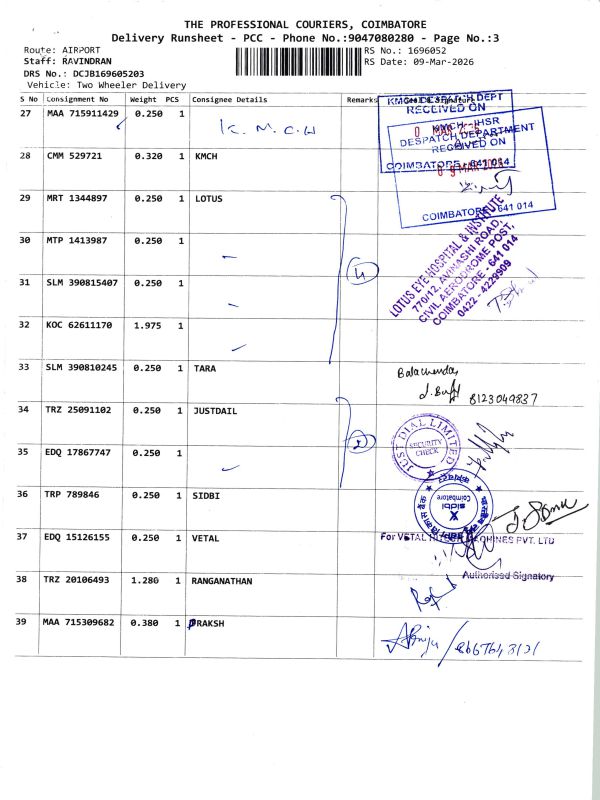 THE PROFESSIONAL COURIERS, COIMBATORE
Delivery Runsheet - PCC - Phone No.:9047080280 - Page No.:3
Route: AIRPORT
Staff: RAVINDRAN
DRS No.: DCJB169605203
Vehicle: Two Wheeler Delivery
RS No.: 1696052
RS Date: 09-Mar-2026
S No Consignment No Weight PCS Consignee Details Remarks
27 MAA 715911429 0.250 1 K.M.C.H
28 CMM 529721 0.320 1 KMCH
KMCH DESPATCH DEPT
RECEIVED ON
COIMBATORE - 641 014
KMCH-IHSR
DESPATCH DEPARTMENT
RECEIVED ON
09 MAR 2026
COIMBATORE - 641 014
29 MRT 1344897 0.250 1 LOTUS
30 MTP 1413987 0.250 1
31 SLM 390815407 0.250 1
32 KOC 62611170 1.975 1
4
LOTUS EYE HOSPITAL & INSTITUTE
770/12, AVINASHI ROAD,
CIVIL AERODROME POST,
COIMBATORE - 641 014
0422 - 4229909
33 SLM 390810245 0.250 1 TARA
8123049837
34 TRZ 25091102 0.250 1 JUSTDAIL
35 EDQ 17867747 0.250 1
2
JUST DIAL LIMITED
SECURITY
CHECK
36 TRP 789846 0.250 1 SIDBI
sidbi
Coimbatore
37 EDQ 15126155 0.250 1 VETAL
For VETAL HITECH MACHINES PVT. LTD
Authorised Signatory
38 TRZ 20106493 1.280 1 RANGANATHAN
39 MAA 715309682 0.380 1 PRAKSH